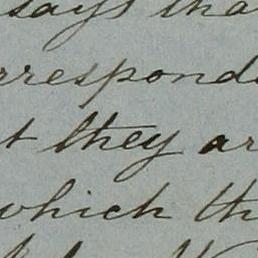 says tha
rrespond
t they ar
which th